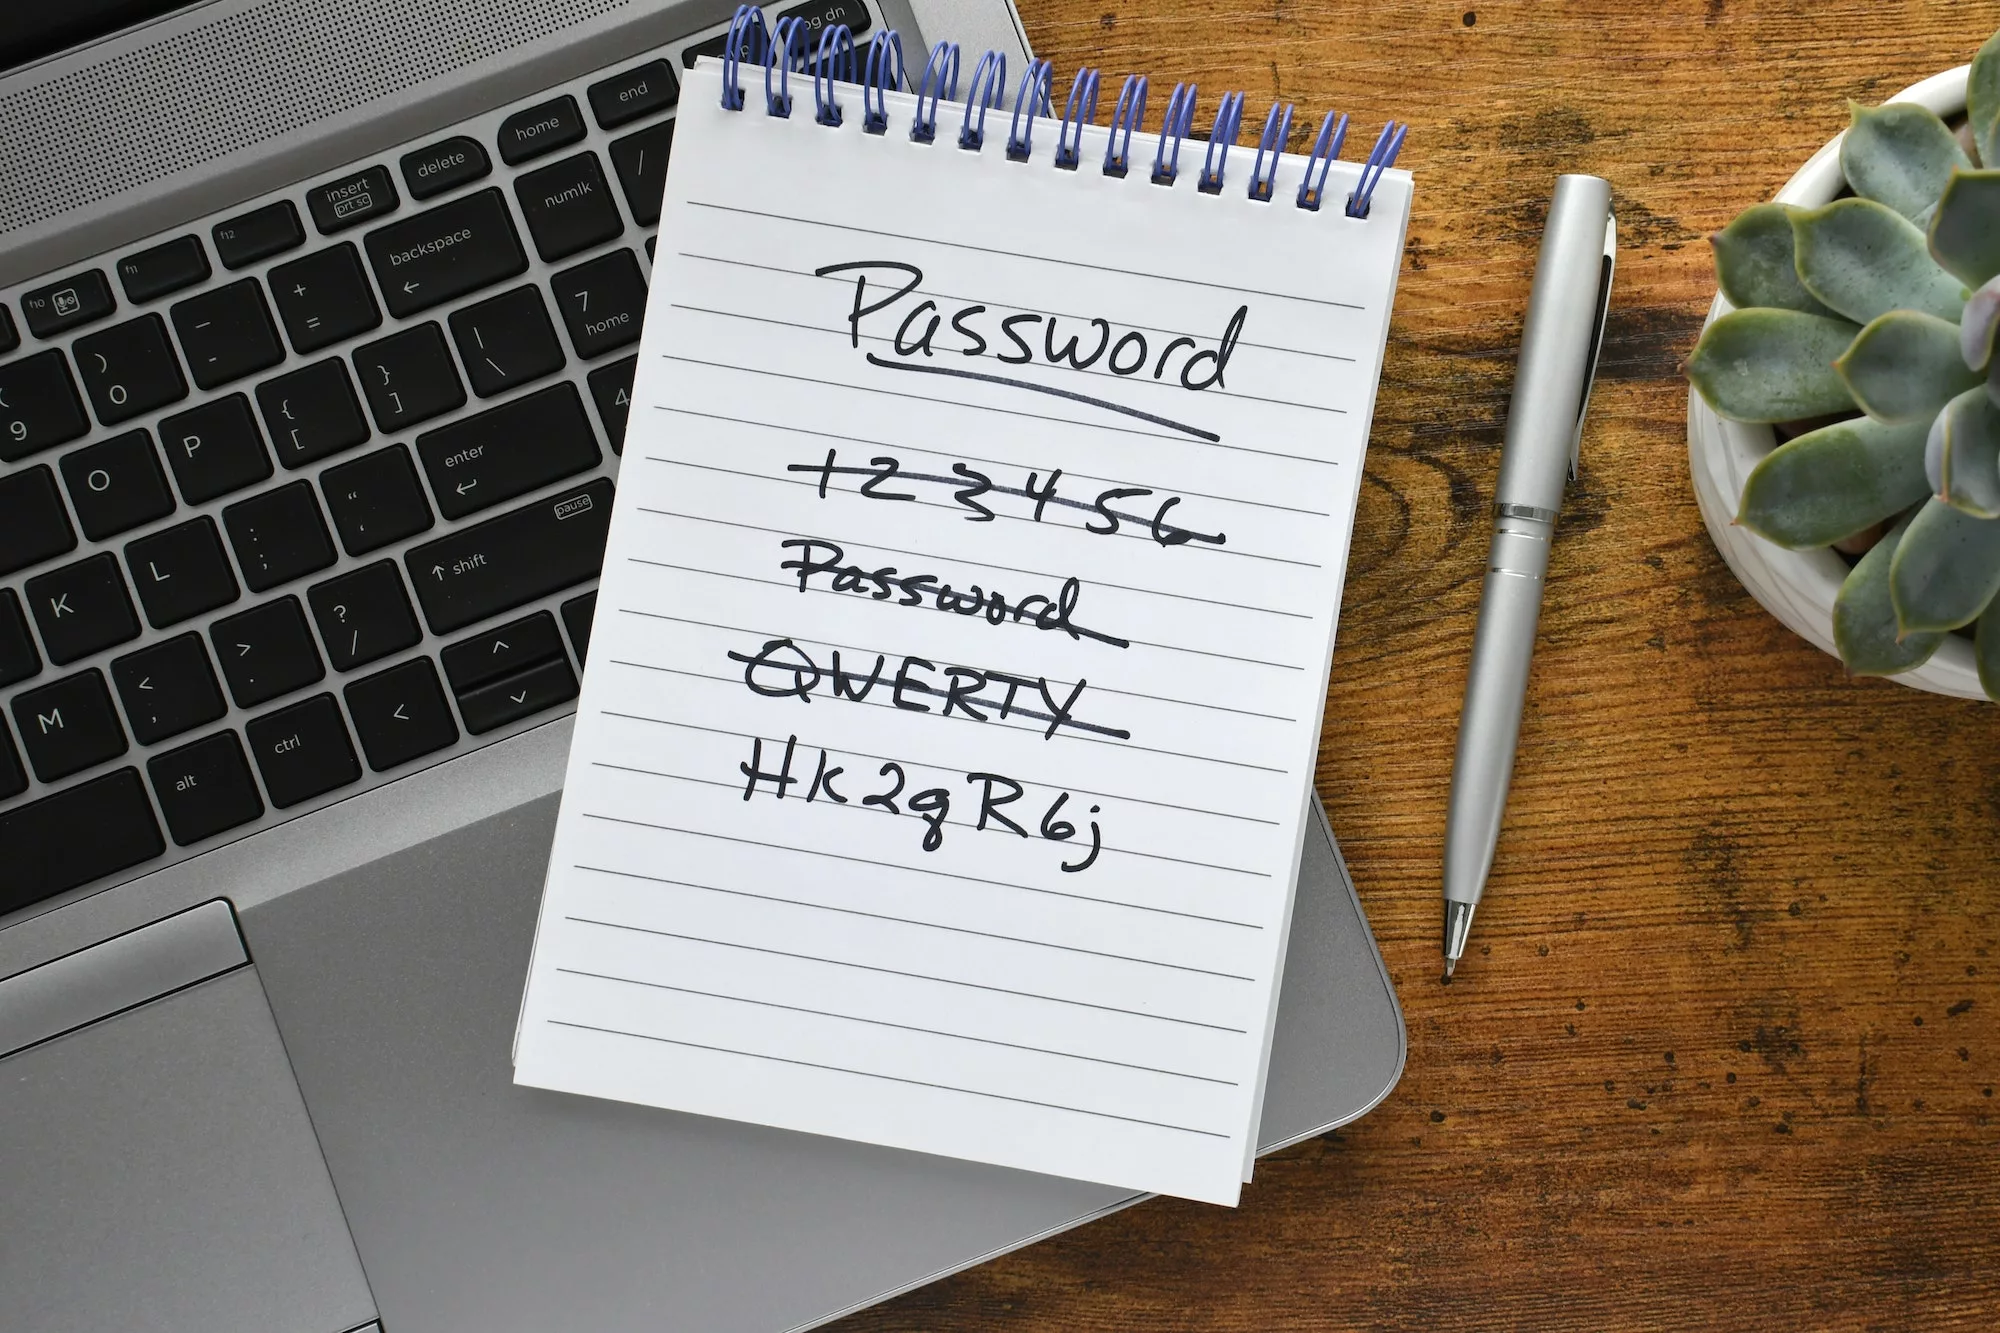 pg dn
end
home
delete
insert
prt sc
f12
f11
f10
/
numlk
backspace
+
=
_
-
)
0
(
9
7
home
|
\
}
]
{
[
P
O
4
enter
"
'
:
;
L
K
pause
shift
?
/
>
.
<
,
M
ctrl
alt
Password
123456
Password
QWERTY
Hk2gR6j